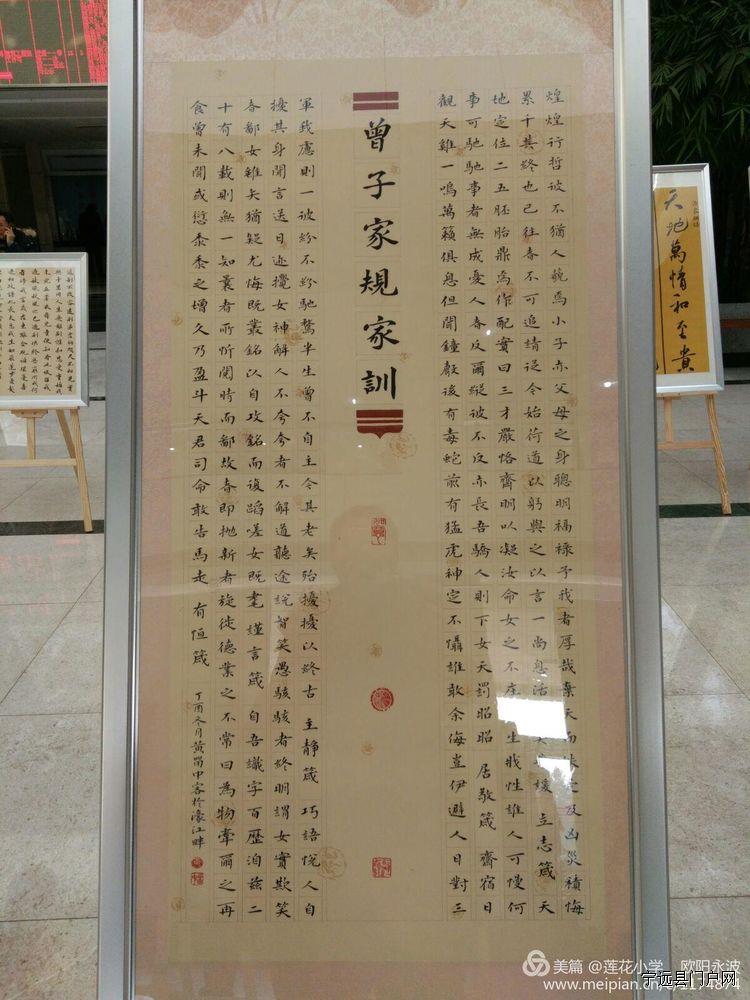 煌煌行哲彼不猶人藐焉小子亦父母之身聰明福祿予我者厚哉棄天而佚是及凶災積悔
累千其終也已往者不可追請從今始荷道以躬輿之以言一尚息活 立志箴 天
地定位二五胚胎鼎焉作配實曰三才嚴恪齋明以凝汝命女之不庄生戕性誰人可慢何
事可馳馳事者無成慢人者反爾縱彼不反亦長吾驕人則下女天罰昭昭 居敬箴 齋宿日
觀天雞一鳴萬籟俱息但聞鐘聲後有毒蛇前有猛虎神定不懾誰敢余侮豈伊避人日對三
曾子家規家訓
軍我慮則一彼紛不紛馳騖半生曾不自主今其老矣殆擾擾以終古 主靜箴 巧語悅人自
擾其身閒言送日亦攪女神解人不夸夸者不解道聽途說智笑愚駭駭者終明謂女實欺笑
者鄙女雖矢猶疑尤悔既叢銘以自攻銘而復蹈嗟女既耄 謹言箴 自吾識字百歷洎茲二
十有八載則無一知曩者所忻閱時而鄙故者即拋新者旋徙德業之不常曰為物牽爾之再
食曾未聞或愆黍黍之增久乃盈斗天君司命敢告馬走 有恒箴
丁酉冬月黃蜀中客於濠江畔
天地萬情和至貴
美篇 @莲花小学、欧阳永波
宁远县门户网